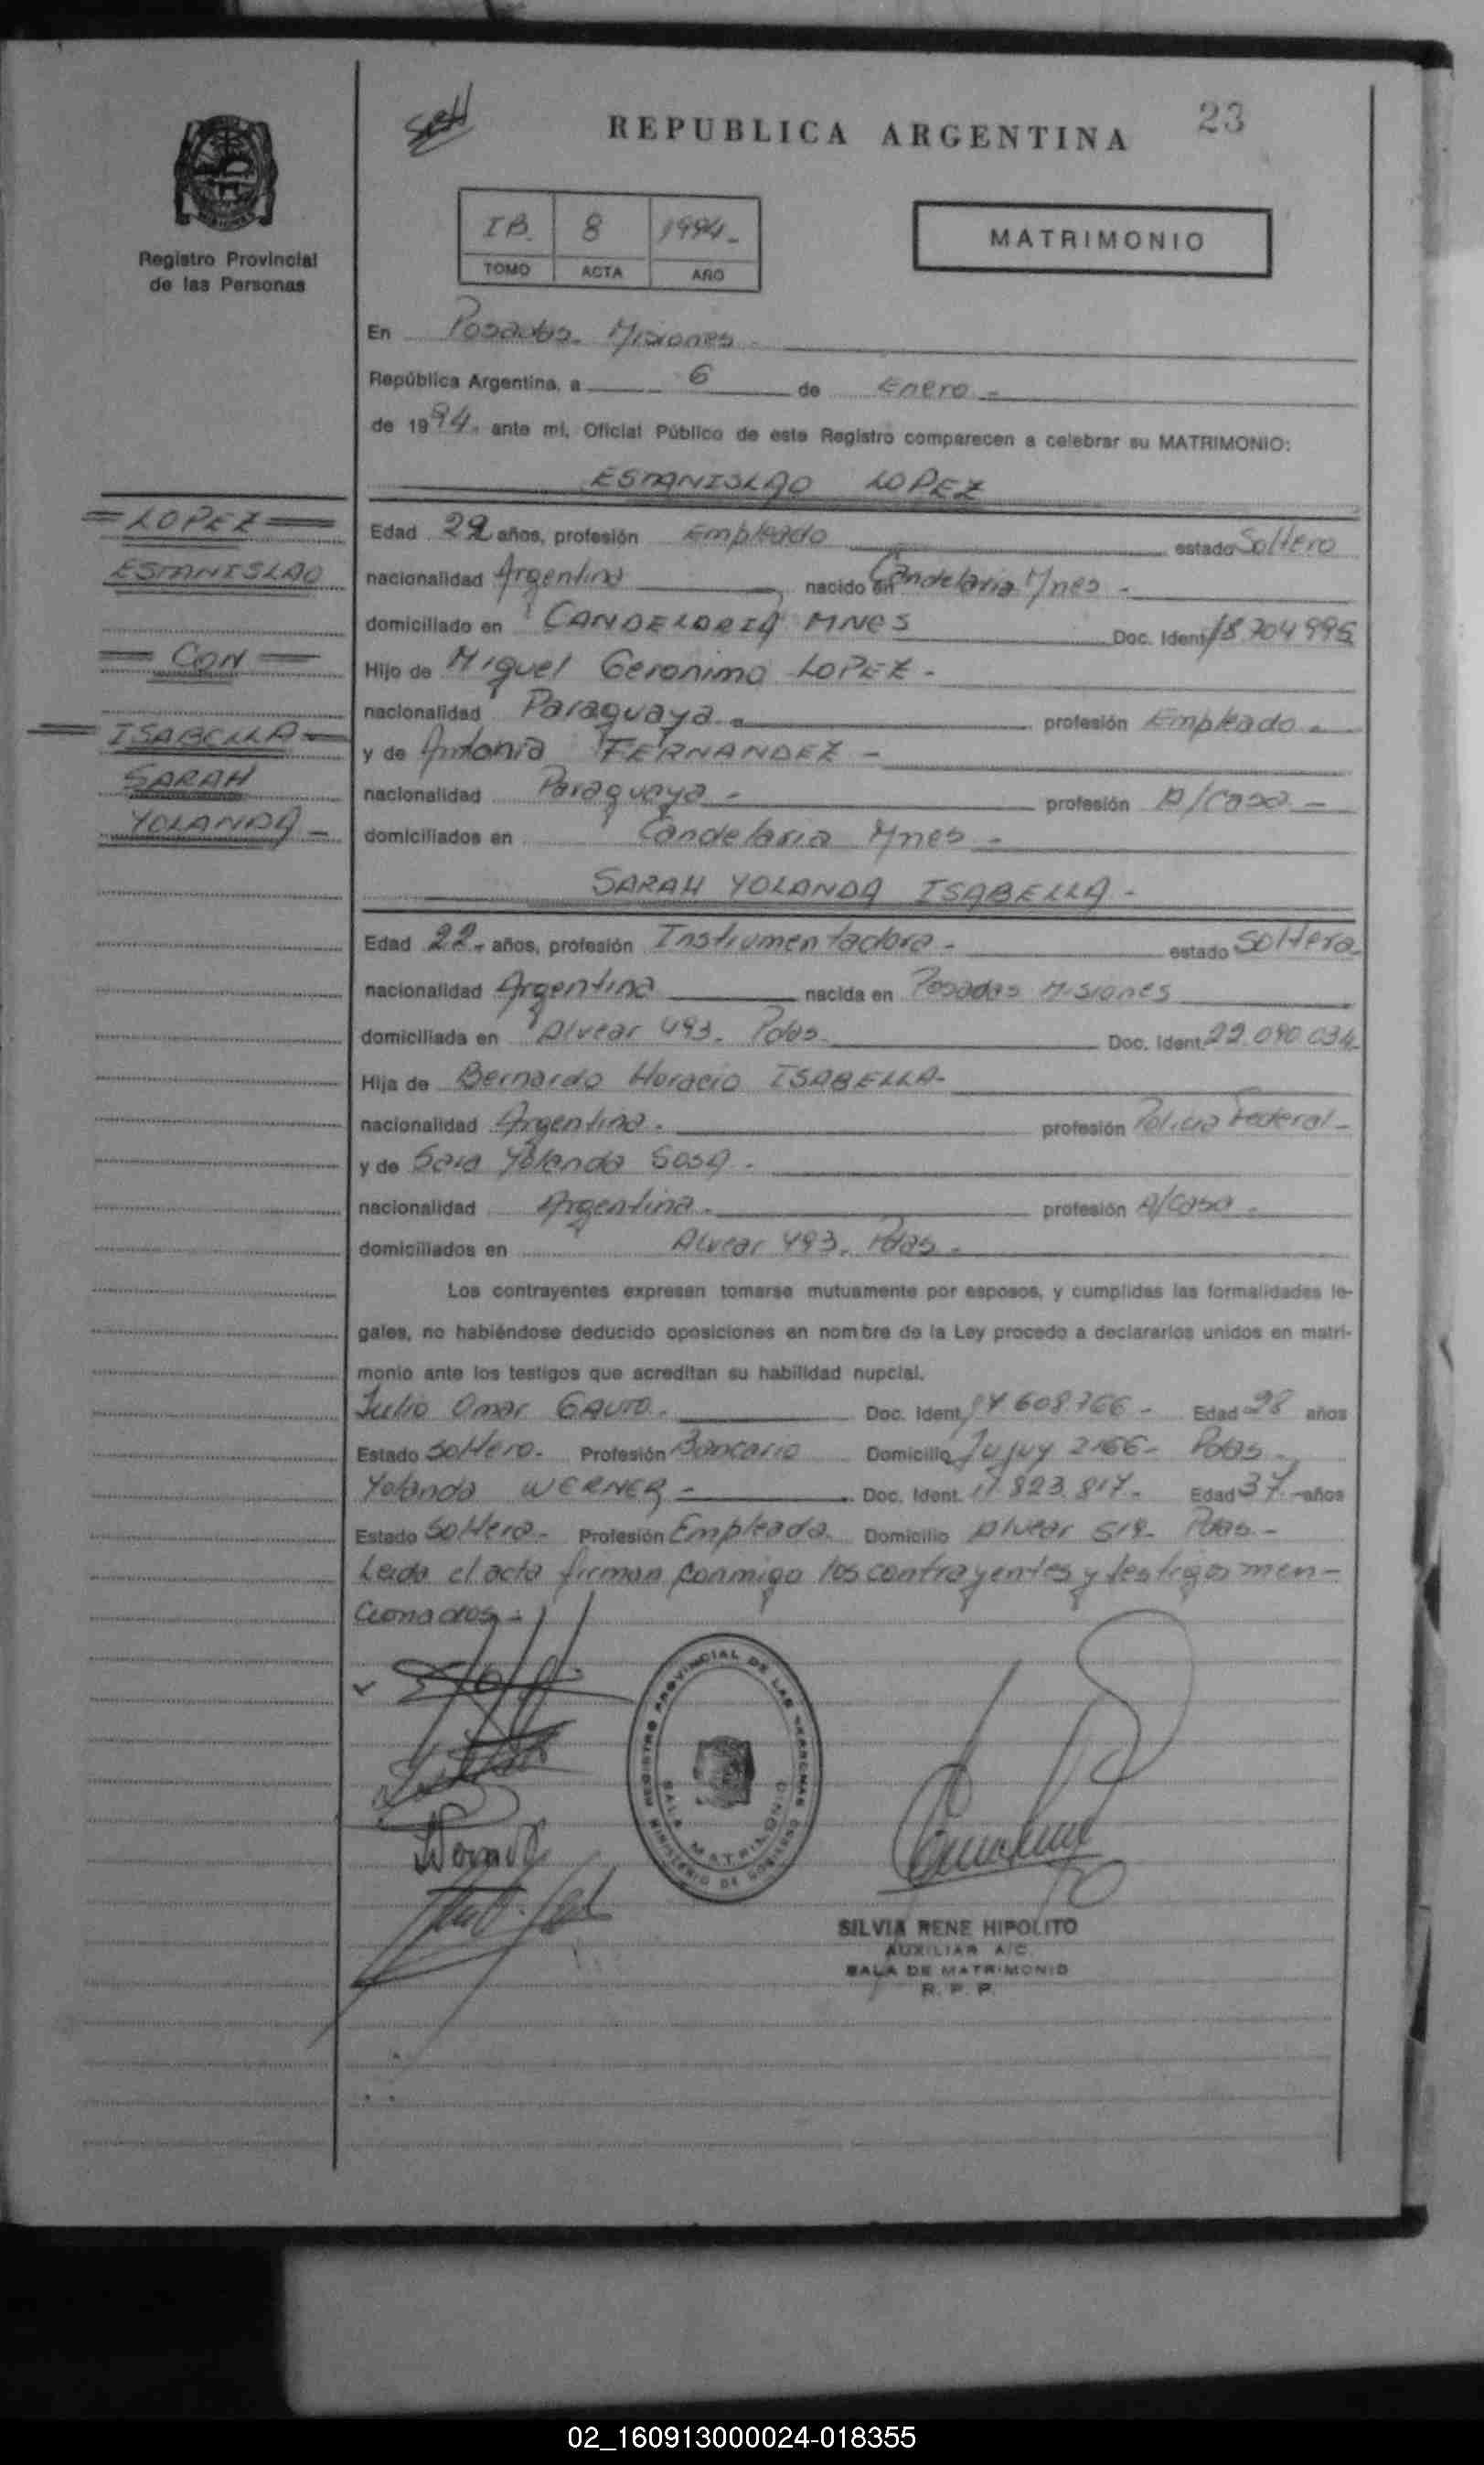 REPUBLICA ARGENTINA
23
Registro Provincial
de las Personas
IB. 8 1994.-
TOMO ACTA AÑO
MATRIMONIO
En Posadas. Misiones -
República Argentina, a 6 de Enero -
de 1994. ante mí, Oficial Público de este Registro comparecen a celebrar su MATRIMONIO:
ESTANISLAO LOPEZ
= LOPEZ =
ESTANISLAO
= CON =
= ISABELLA =
SARAH
YOLANDA -
Edad 29 años, profesión Empleado estado Soltero
nacionalidad Argentina nacido en Candelaria Mnes -
domiciliado en CANDELARIA MNES Doc. Ident. 18.704.995
Hijo de Miguel Geronimo LOPEZ -
nacionalidad Paraguaya - profesión Empleado -
y de Antonia FERNANDEZ -
nacionalidad Paraguaya - profesión A/casa -
domiciliados en Candelaria Mnes -
SARAH YOLANDA ISABELLA -
Edad 22.- años, profesión Instrumentadora - estado Soltera
nacionalidad Argentina nacida en Posadas Misiones
domiciliada en Alvear 493. Pdas. Doc. Ident. 22.090.034
Hija de Bernardo Horacio ISABELLA-
nacionalidad Argentina. profesión Policia Federal -
y de Sara Yolanda Sosa.
nacionalidad Argentina. profesión A/casa.
domiciliados en Alvear 493. Pdas.
Los contrayentes expresan tomarse mutuamente por esposos, y cumplidas las formalidades le-
gales, no habiéndose deducido oposiciones en nombre de la Ley procedo a declararlos unidos en matri-
monio ante los testigos que acreditan su habilidad nupcial.
Julio Omar GAUTO. Doc. Ident. 17.608.766 - Edad 28 años
Estado Soltero. Profesión Bancario Domicilio Jujuy 2166- Pdas.
Yolanda WERNER - Doc. Ident. 17.823.817. Edad 37.- años
Estado Soltera- Profesión Empleada. Domicilio Alvear 519- Pdas -
Leida el acta firman conmigo los contrayentes y testigos men-
cionados.-
REGISTRO PROVINCIAL DE LAS PERSONAS
SALA MATRIMONIO
MINISTERIO DE GOBIERNO
SILVIA RENE HIPOLITO
AUXILIAR A/C.
SALA DE MATRIMONIO
R. P. P.
02_160913000024-018355